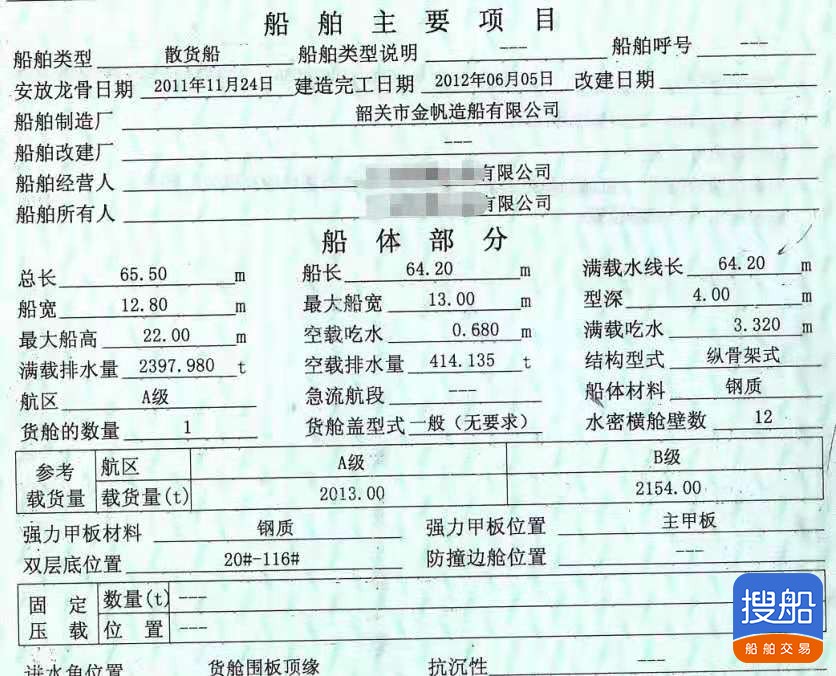 船舶主要项目
船舶类型 散货船 船舶类型说明 --- 船舶呼号 ---
安放龙骨日期 2011年11月24日 建造完工日期 2012年06月05日 改建日期 ---
船舶制造厂 韶关市金帆造船有限公司
船舶改建厂 ---
船舶经营人 有限公司
船舶所有人 有限公司
船体部分
总长 65.50 m 船长 64.20 m 满载水线长 64.20 m
船宽 12.80 m 最大船宽 13.00 m 型深 4.00 m
最大船高 22.00 m 空载吃水 0.680 m 满载吃水 3.320 m
满载排水量 2397.980 t 空载排水量 414.135 t 结构型式 纵骨架式
航区 A级 急流航段 --- 船体材料 钢质
货舱的数量 1 货舱盖型式 一般（无要求） 水密横舱壁数 12
参考载货量 航区 A级 B级
载货量(t) 2013.00 2154.00
强力甲板材料 钢质 强力甲板位置 主甲板
双层底位置 20#-116# 防撞边舱位置 ---
固定压载 数量(t) ---
位置 ---
进水角位置 货舱围板顶缘 抗沉性 ---
搜船
船舶交易